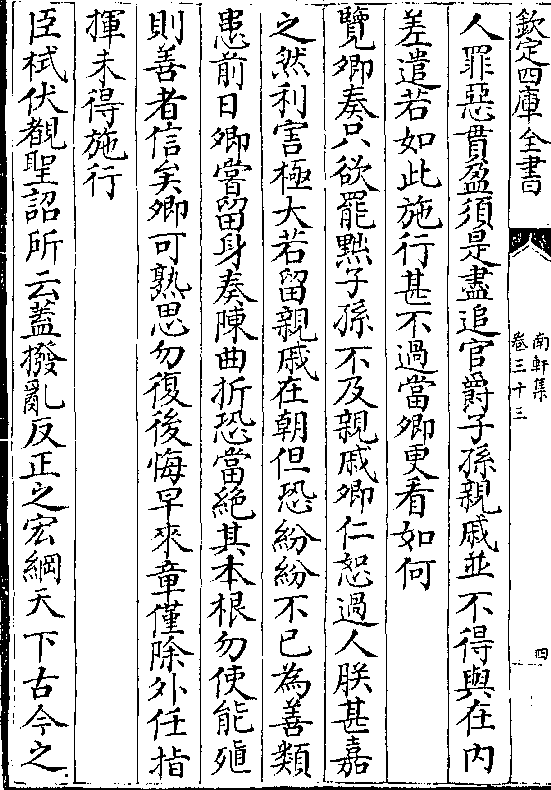 欽定四庫全書
南軒集
卷三十三
四
人罪惡貫盈須是盡追官爵子孫親戚並不得與在內
差遣若如此施行甚不過當卿更看如何
覽卿奏只欲罷黜子孫不及親戚卿仁恕過人朕甚嘉
之然利害極大若留親戚在朝但恐紛紛不已為善類
患前日卿嘗留身奏陳曲折恐當絕其本根勿使能殖
則善者信矣卿可熟思勿復後悔早來章僅除外任指
揮未得施行
臣栻伏覩聖詔所云蓋撥亂反正之宏綱天下古今之